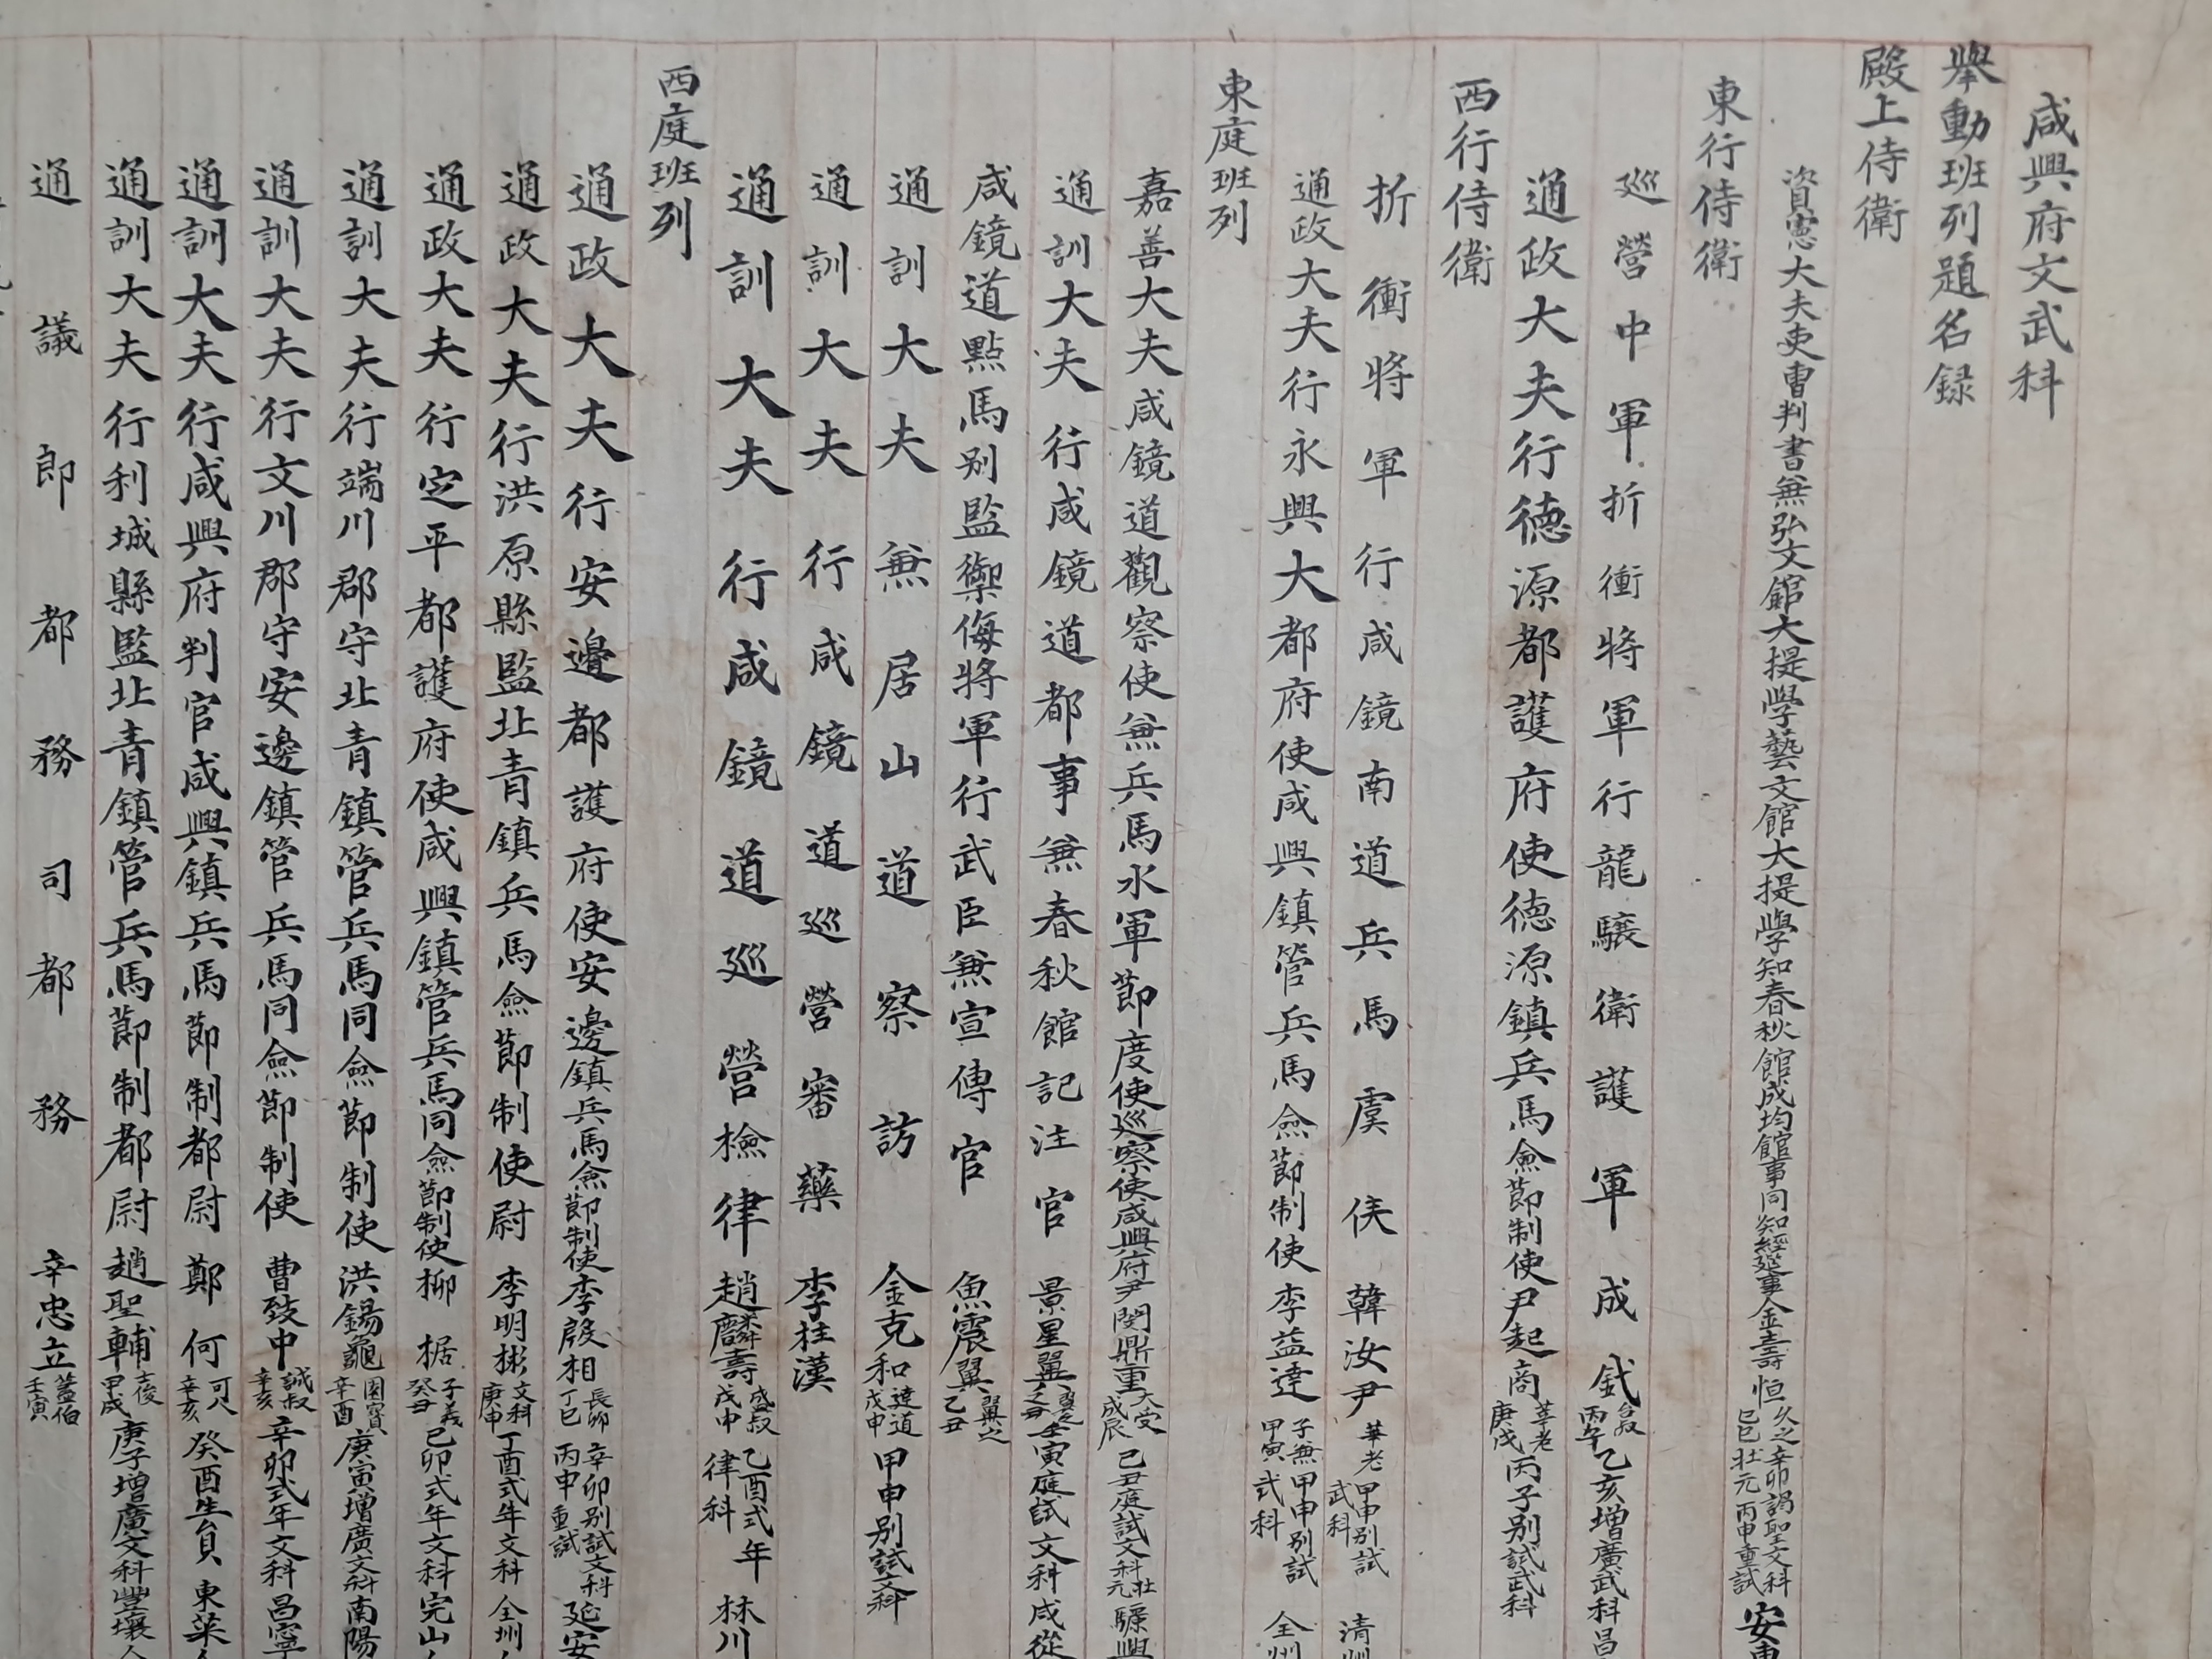 咸興府文武科
舉動班列題名録
殿上侍衛
資憲大夫吏曹判書兼弘文館大提學藝文館大提學知春秋館成均館事同知經筵事金壽恒 久之 己巳 辛卯謁聖文科壯元 丙申重試 安東
東行侍衛
巡營中軍折衝將軍行龍驤衛護軍成鉽 丙午 乙亥增廣武科昌
通政大夫行德源都護府使德源鎮兵馬僉節制使尹起商 莘老 庚戌 丙子別試武科
西行侍衛
折衝將軍行咸鏡南道兵馬虞侯韓汝尹 華老 甲申別試武科 清州
通政大夫行永興大都府使咸興鎮管兵馬僉節制使李益達 子兼 甲寅 甲申別試武科 全州
東庭班列
嘉善大夫咸鏡道觀察使兼兵馬水軍節度使巡察使咸興府尹閔鼎重 大受 戊辰 己丑庭試文科壯元 驪興
通訓大夫行咸鏡道都事兼春秋館記注官 景星翼 壬寅庭試文科咸從
咸鏡道點馬別監禦侮將軍行武臣兼宣傳官 魚震翼 翼之 乙丑
通訓大夫兼居山道察訪 金克和 達道 戊申 甲申別試文科
通訓大夫行咸鏡道巡營審藥 李柱漢
通訓大夫行咸鏡道巡營檢律 趙麟壽 盛叔 戊申 乙酉式年律科 林川
西庭班列
通政大夫行安邊都護府使安邊鎮兵馬僉節制使李殷相 長卿 丁巳 辛卯別試文科丙申重試 延安
通政大夫行洪原縣監北青鎮兵馬僉節制使尉 李明彬 文科 庚申 丁酉式年文科 全州
通政大夫行定平都護府使咸興鎮管兵馬同僉節制使柳椐 子義 癸丑 己卯式年文科完山
通訓大夫行端川郡守北青鎮管兵馬同僉節制使 洪錫龜 國寶 辛酉 庚寅增廣文科南陽
通訓大夫行文川郡守安邊鎮管兵馬同僉節制使 曹致中 誠叔 辛亥 辛卯式年文科昌寧
通訓大夫行咸興府判官咸興鎮兵馬節制都尉 鄭何 可人 辛亥 癸酉生員 東萊
通訓大夫行利城縣監北青鎮管兵馬節制都尉 趙聖輔 士後 甲戌 庚子增廣文科豐壤人
通議郎都務司都務 辛忠立 蓋伯 壬寅